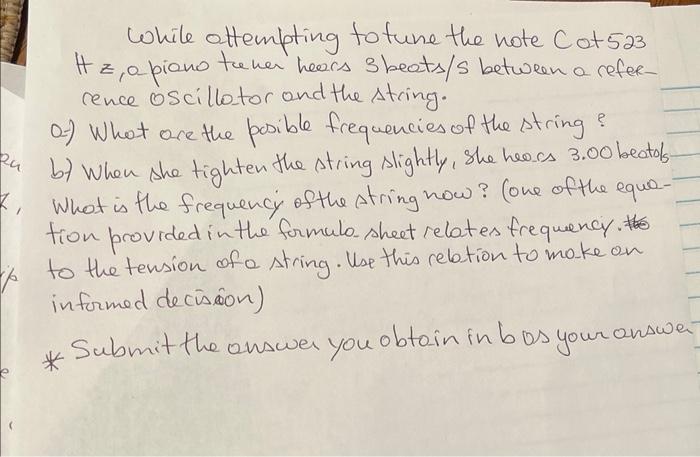 While attempting to tune the note C at 523
Hz, a piano tuner hears 3 beats/s between a refer-
rence oscillator and the string.
a-) What are the posible frequencies of the string ?
b-) When she tighten the string slightly, she hears 3.00 beats/s
What is the frequency of the string now ? (one of the equa-
tion provided in the formula sheet relates frequency.
to the tension of a string. Use this relation to make an
informed decision)
* Submit the answer you obtain in b as your answe